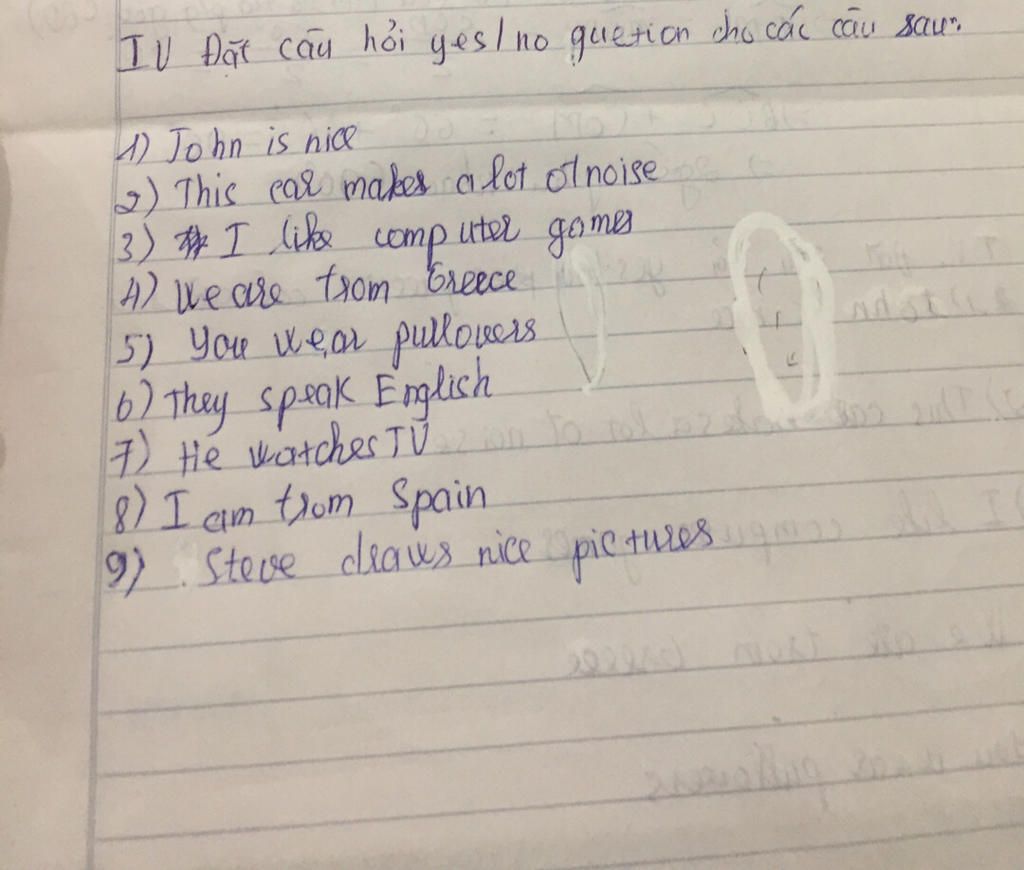 IV Đặt câu hỏi yes/no quetion cho các câu sau:
1) John is nice
2) This car makes a lot of noise
3) I like computer games
4) We are from Greece
5) You wear pullovers
6) They speak English
7) He watches TV
8) I am from Spain
9) Steve draws nice pictures